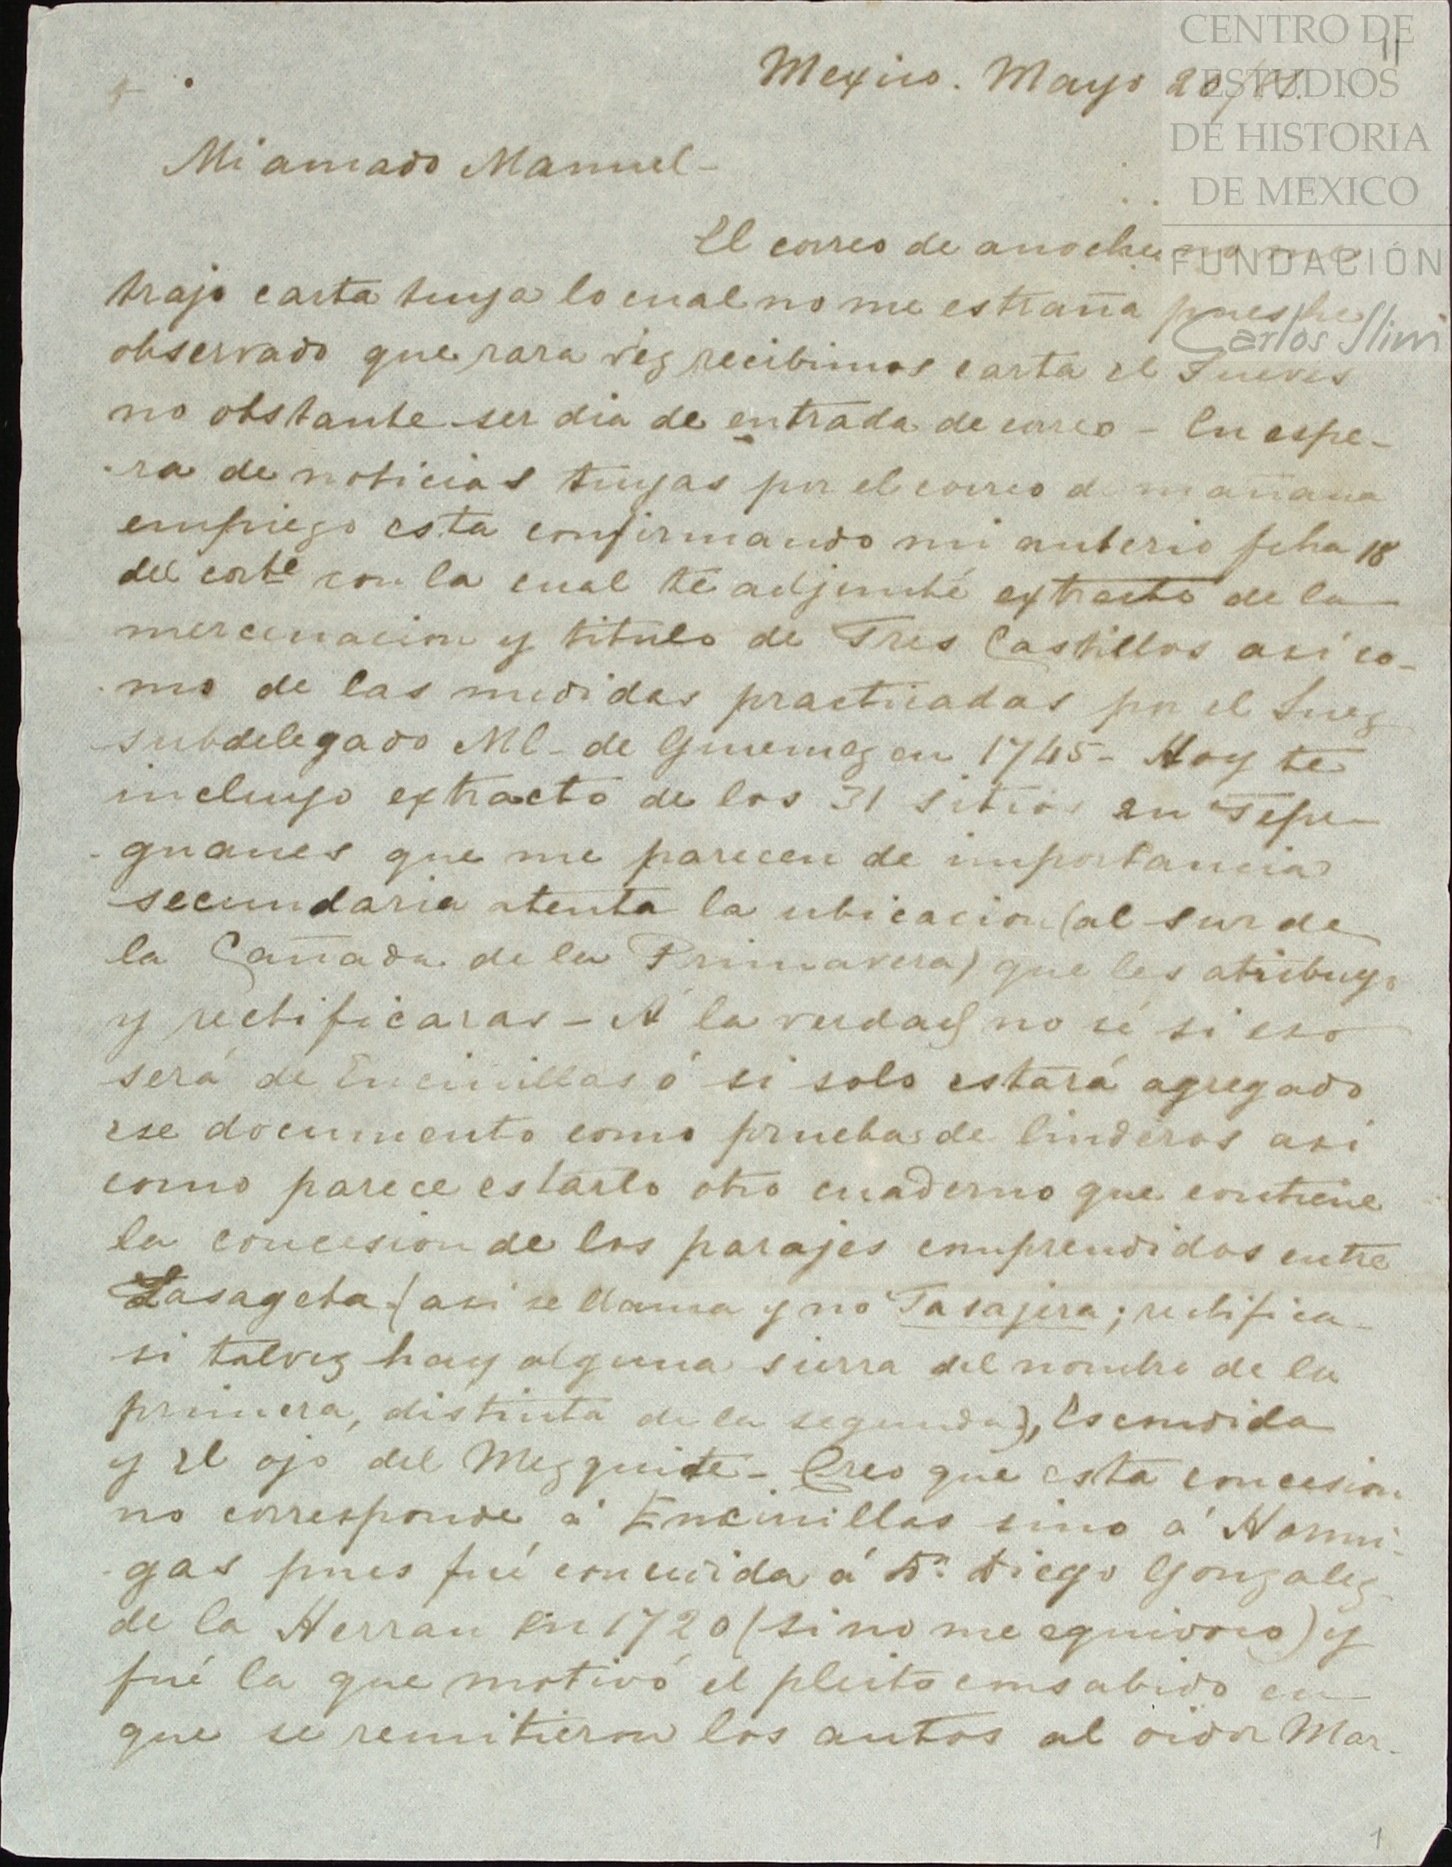 CENTRO DE
ESTUDIOS
DE HISTORIA
DE MEXICO
FUNDACIÓN
Carlos Slim
11
Mexico. Mayo 20/
Mi amado Manuel-
El correo de anoche no me
trajo carta tuya lo cual no me estraña pues he
observado que rara vez recibimos carta el Jueves
no obstante ser dia de entrada de correo - En espe-
ra de noticias tuyas por el correo de mañana
empiezo esta confirmando mi anterio fcha 18
del corte con la cual te adjunté extracto de la
mercenacion y titulo de Tres Castillos asi co-
mo de las medidas practicadas por el Juez
subdelegado Ml. de Guemez en 1745- Hoy te
incluyo extracto de los 31 sitios en Tepe-
guanes que me parecen de importancia
secundaria atenta la ubicacion (al sur de
la Cañada de la Primavera) que les atribuyo
y rectificaras - Á la verdad no sé si eso
será de Encinillas ó si solo estará agregado
ese documento como prueba de linderos asi
como parece estarlo otro cuaderno que contiene
la concesion de los parajes comprendidos entre
Zasageta (asi se llama y no Tasajera; rectifica
si talvez hay alguna sierra del nombre de la
primera, distinta de la segunda), Escondida
y el ojo del Mezquite - Creo que esta concesion
no corresponde á Encinillas sino á Hormi-
gas pues fué concedida á Dn. Diego Gonzalez
de la Herran en 1720 (si no me equivoco) y
fué la que motivó el pleito consabido en
que se remitieron los autos al oidor Mar-
1